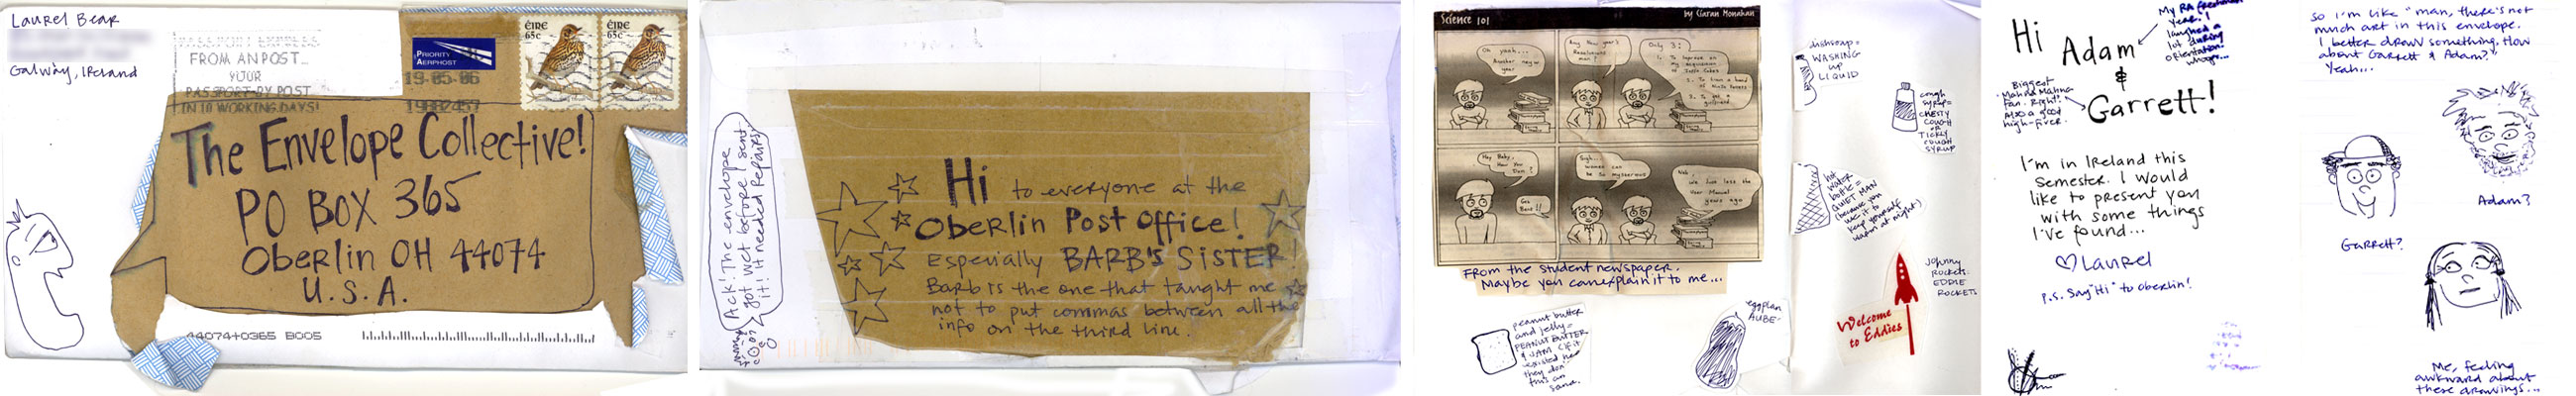 Laurel Bear
Galway, Ireland
FROM AN POST...
YOUR
PASSPORT BY POST
IN 10 WORKING DAYS!
PRIORITY
AERPHOST
19-05-06
ÉIRE
65c
ÉIRE
65c
The Envelope Collective!
PO BOX 365
Oberlin OH 44074
U.S.A.
44074+0365 B005
Ack! The envelope
got wet before I sent
it! It needed repairs!
Hi to everyone at the
Oberlin Post Office!
Especially BARB'S SISTER!
Barb is the one that taught me
not to put commas between all the
info on the third line.
Science 101
by Ciaran Monahan
Oh yeah...
Another new
year
Any New year's
Resolutions
man?
Only 3:
Hey Baby,
How You
Doin?
Sigh...
women can
be so mysterious
we just lost the
User Manual
years ago
From the student newspaper.
Maybe you can explain it to me...
dishsoap =
WASHING
UP
LIQUID
cough
syrup =
CHESTY
COUGH
OR
TICKLY
COUGH
SYRUP
hot
water
bottle =
QUIET MAN
(because you
use it to
keep yourself
warm at night)
Johnny
Rockets:
EDDIE
ROCKETS
Welcome
to Eddies
peanut butter
and jelly =
PEANUT BUTTER
& JAM (if it
existed here
they don't
eggplan
AUBE-
Hi Adam
&
Garrett!
My RA freshman
year. I
laughed a
lot during
orientation.
whoops...
Biggest
Mahna Mahna
Fan. Right?
Also a good
high-fiver.
I'm in Ireland this
semester. I would
like to present you
with some things
I've found...
♡ Laurel
P.S. Say "Hi" to Oberlin!
so I'm like "man, there's not
much art in this envelope.
I better draw something. How
about Garrett & Adam?"
Yeah...
Adam?
Garrett?
Me, feeling
awkward about
these drawings...